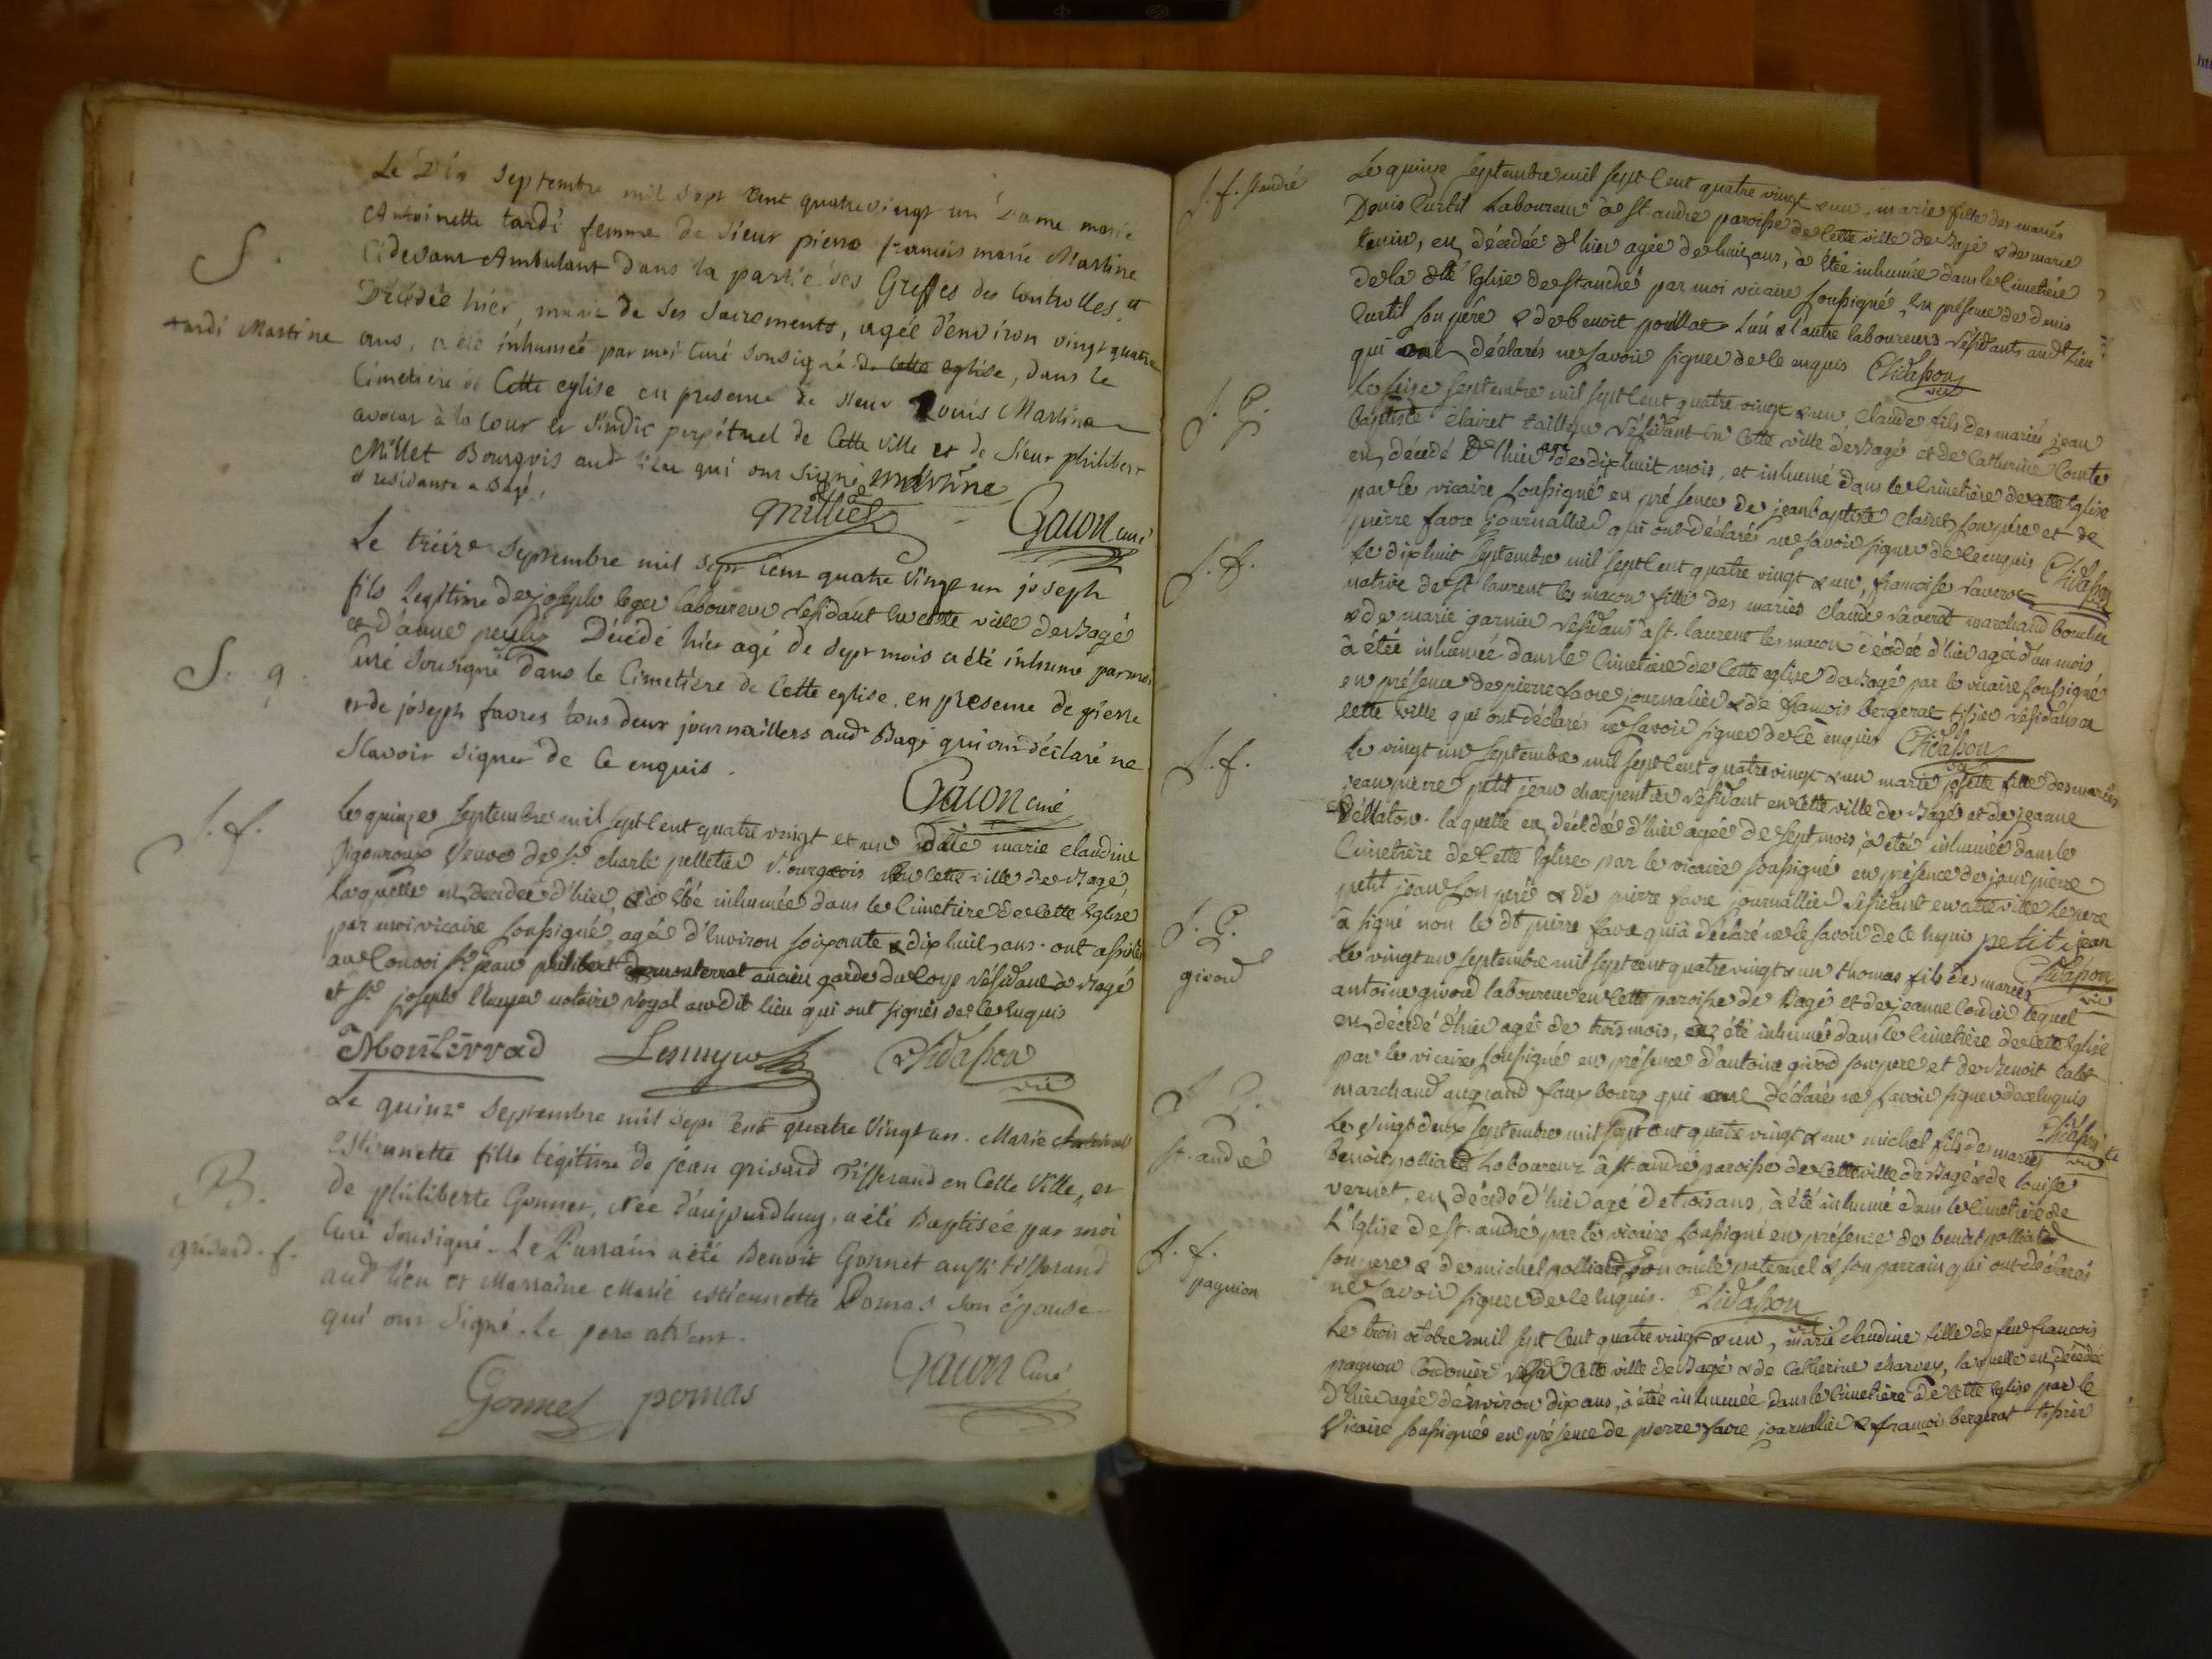 Le Dix Septembre mil sept cent quatre vingt un Dame marie
Antoinette tardi femme de Sieur pierre francois marie Martine
S.
Cidevant Ambulant dans la partie des Greffes des Controlles, et
Décédée hier, munie de ses Sacrements, agée d'environ vingt quatre
tardi Martine
ans, a été inhumée par moi Curé Sousigné de cette eglise, dans le
Cimetiere de Cette eglise en presence de sieur Louis Martine
avocat à la Cour et Sindic perpétuel de Cette ville et de Sieur philibert
Millet Bourgois aud lieu qui ont signé martine
et residants a Bagé.
Millet
Gacon curé
Le treize Septembre mil sept cent quatre Vingt un joseph
fils Legitime de joseph leger laboureur résidant en cette ville de Bagé
et d'anne Décédé hier agé de sept mois a été inhumé par moi
S. g.
Curé Sousigné dans le Cimetiére de Cette eglise, en presence de pierre
et de joseph favres tous deux journailliers aud Bagé qui ont déclaré ne
Scavoir signer de Ce enquis.
Gacon curé
S. f.
Le quinze septembre mil sept cent quatre vingt et un dlle marie claudine
veuve de Sr charle pelletier Bourgeois en cette ville de Bagé,
laquelle est décédée d'hier, a été inhumée dans le Cimetière de cette Eglise
par moi vicaire soussigné, agée d'Environ soixante & dix huit ans. ont assisté
au Convoi Sr jean philibert demonterrat ancien garde du Corp résidant à Bagé
et Sr joseph notaire royal au dit lieu qui ont signés de ce Enquis
Monterrad
Chidasson
vic
Le quinze Septembre mil sept cent quatre Vingt un. Marie
estiennette fille légitime de jean grisard Tisserand en Cette Ville, et
B.
de philiberte Gonnet, Née d'aujourdhuy, a été Baptisée par moi
Curé Sousigné. Le Parrain a été Benoit Gonnet aussi tisserand
grisard. f.
aud lieu et Marraine Marie estiennette Pomas son épouse
qui ont signé. Le pere absent.
Gonnet pomas
Gacon Curé
S. f. St andré
Le quinze septembre mil sept cent quatre vingt & un, marie fille des mariés
Denis Curtil Laboureur à St. andré paroisse de cette ville de Bagé & de marie
est décédée d'hier agée de huit ans, a étée inhumée dans le Cimetière
de la dte Eglise de St andré par moi vicaire soussigné, en présence de denis
Curtil son père & de benoit l'un & l'autre laboureurs résidants audt lieu
qui ont déclarés ne savoir signer de ce enquis Chidasson
vic
S. G.
Le seize septembre mil sept cent quatre vingt & un, Claude fils des mariés jean
Baptiste clairet tailleur résidant en cette ville de Bagé et de Catherine Comte
est décédé d'hier agé de dix huit mois, et inhumé dans le Cimetière de cette Eglise
par le vicaire soussigné en présence de jean baptiste clairet son père et de
pierre favre journallier qui ont déclarés ne savoir signer de ce enquis Chidasson
S. f.
Le dix huit septembre mil sept cent quatre vingt & un, francoise laverot
native de St. laurent les macon fille des mariés claude laverot marchand boucher
& de marie garnier résidans a St. laurent les macon décédée d'hier agée d'un mois
à étée inhumée dans le Cimetiere de Cette eglise de Bagé par le vicaire soussigné
en présence de pierre favre journalier & de francois bergerat tissier résidans en
cette ville qui ont déclarés ne savoir signer de ce enquis Chidasson
vic
S. f.
Le vingt un septembre mil sept cent quatre vingt & un marie josette fille des mariés
jean pierre petit jean charpentier résidant en cette ville de Bagé et de jeanne
Vellaton. laquelle est décédée d'hier agée de sept mois, à étée inhumée dans le
Cimetière de cette Eglise par le vicaire soussigné en présence de jean pierre
petit jean son père & de pierre favre journallier résidant en cette ville le pere
à signé non le dt pierre favre qui à déclaré ne le savoir de ce enquis petit jean
Chidasson
vic
S. G.
givord
Le vingt un septembre mil sept cent quatre vingt & un thomas fils des mariés
antoine givord laboureur en cette paroisse de Bagé et de jeanne Cordier lequel
est décédé d'hier agé de trois mois, et été inhumé dans le Cimetière de cette Eglise
par le vicaire soussigné en présence d'antoine givord son pere et de Benoit
marchand au grand faux bourg qui ont déclarés ne savoir signer de ce enquis
Chidasson
vic
S. G.
St. andré
Le vingt deux septembre mil sept cent quatre vingt & un michel fils des mariés
benoit polliard laboureur à St. andré paroisse de cette ville de Bagé & de louise
vernet, est décédé d'hier agé de trois ans, à été inhumé dans le Cimetiere de
L'Eglise de St. andré par le vicaire soussigné en présence de benoit polliard
son pere & de michel polliard son oncle paternel & son parrain qui ont déclarés
ne savoir signer de ce enquis. Chidasson
vic
S. f.
pagnion
Le trois octobre mil sept cent quatre vingt & un, marie claudine fille de feu francois
pagnon Cordonier cette ville de Bagé & de Catherine charvet, laquelle est décédée
d'hier agée d'environ dix ans, à étée inhumée dans le Cimetière de cette Eglise par le
vicaire soussigné en présence de pierre favre journallier & francois bergerat tissier